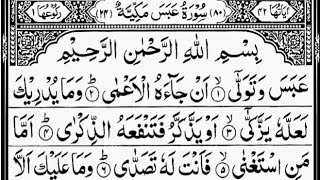 اٰیَاتُهَا ٤٢ (٨٠) سُوْرَةُ عَبَسَ مَكِّيَّةٌ (٢٤) رُكُوْعُهَا ١
بِسْمِ اللّٰهِ الرَّحْمٰنِ الرَّحِيْمِ
عَبَسَ وَتَوَلّٰٓى ۙ﴿١﴾ اَنْ جَآءَهُ الْاَعْمٰى ؕ﴿٢﴾ وَمَا يُدْرِيْكَ
لَعَلَّهٗ يَزَّكّٰٓى ۙ﴿٣﴾ اَوْ يَذَّكَّرُ فَتَنْفَعَهُ الذِّكْرٰى ؕ﴿٤﴾ اَمَّا
مَنِ اسْتَغْنٰى ۙ﴿٥﴾ فَاَنْتَ لَهٗ تَصَدّٰى ؕ﴿٦﴾ وَمَا عَلَيْكَ اَلَّا